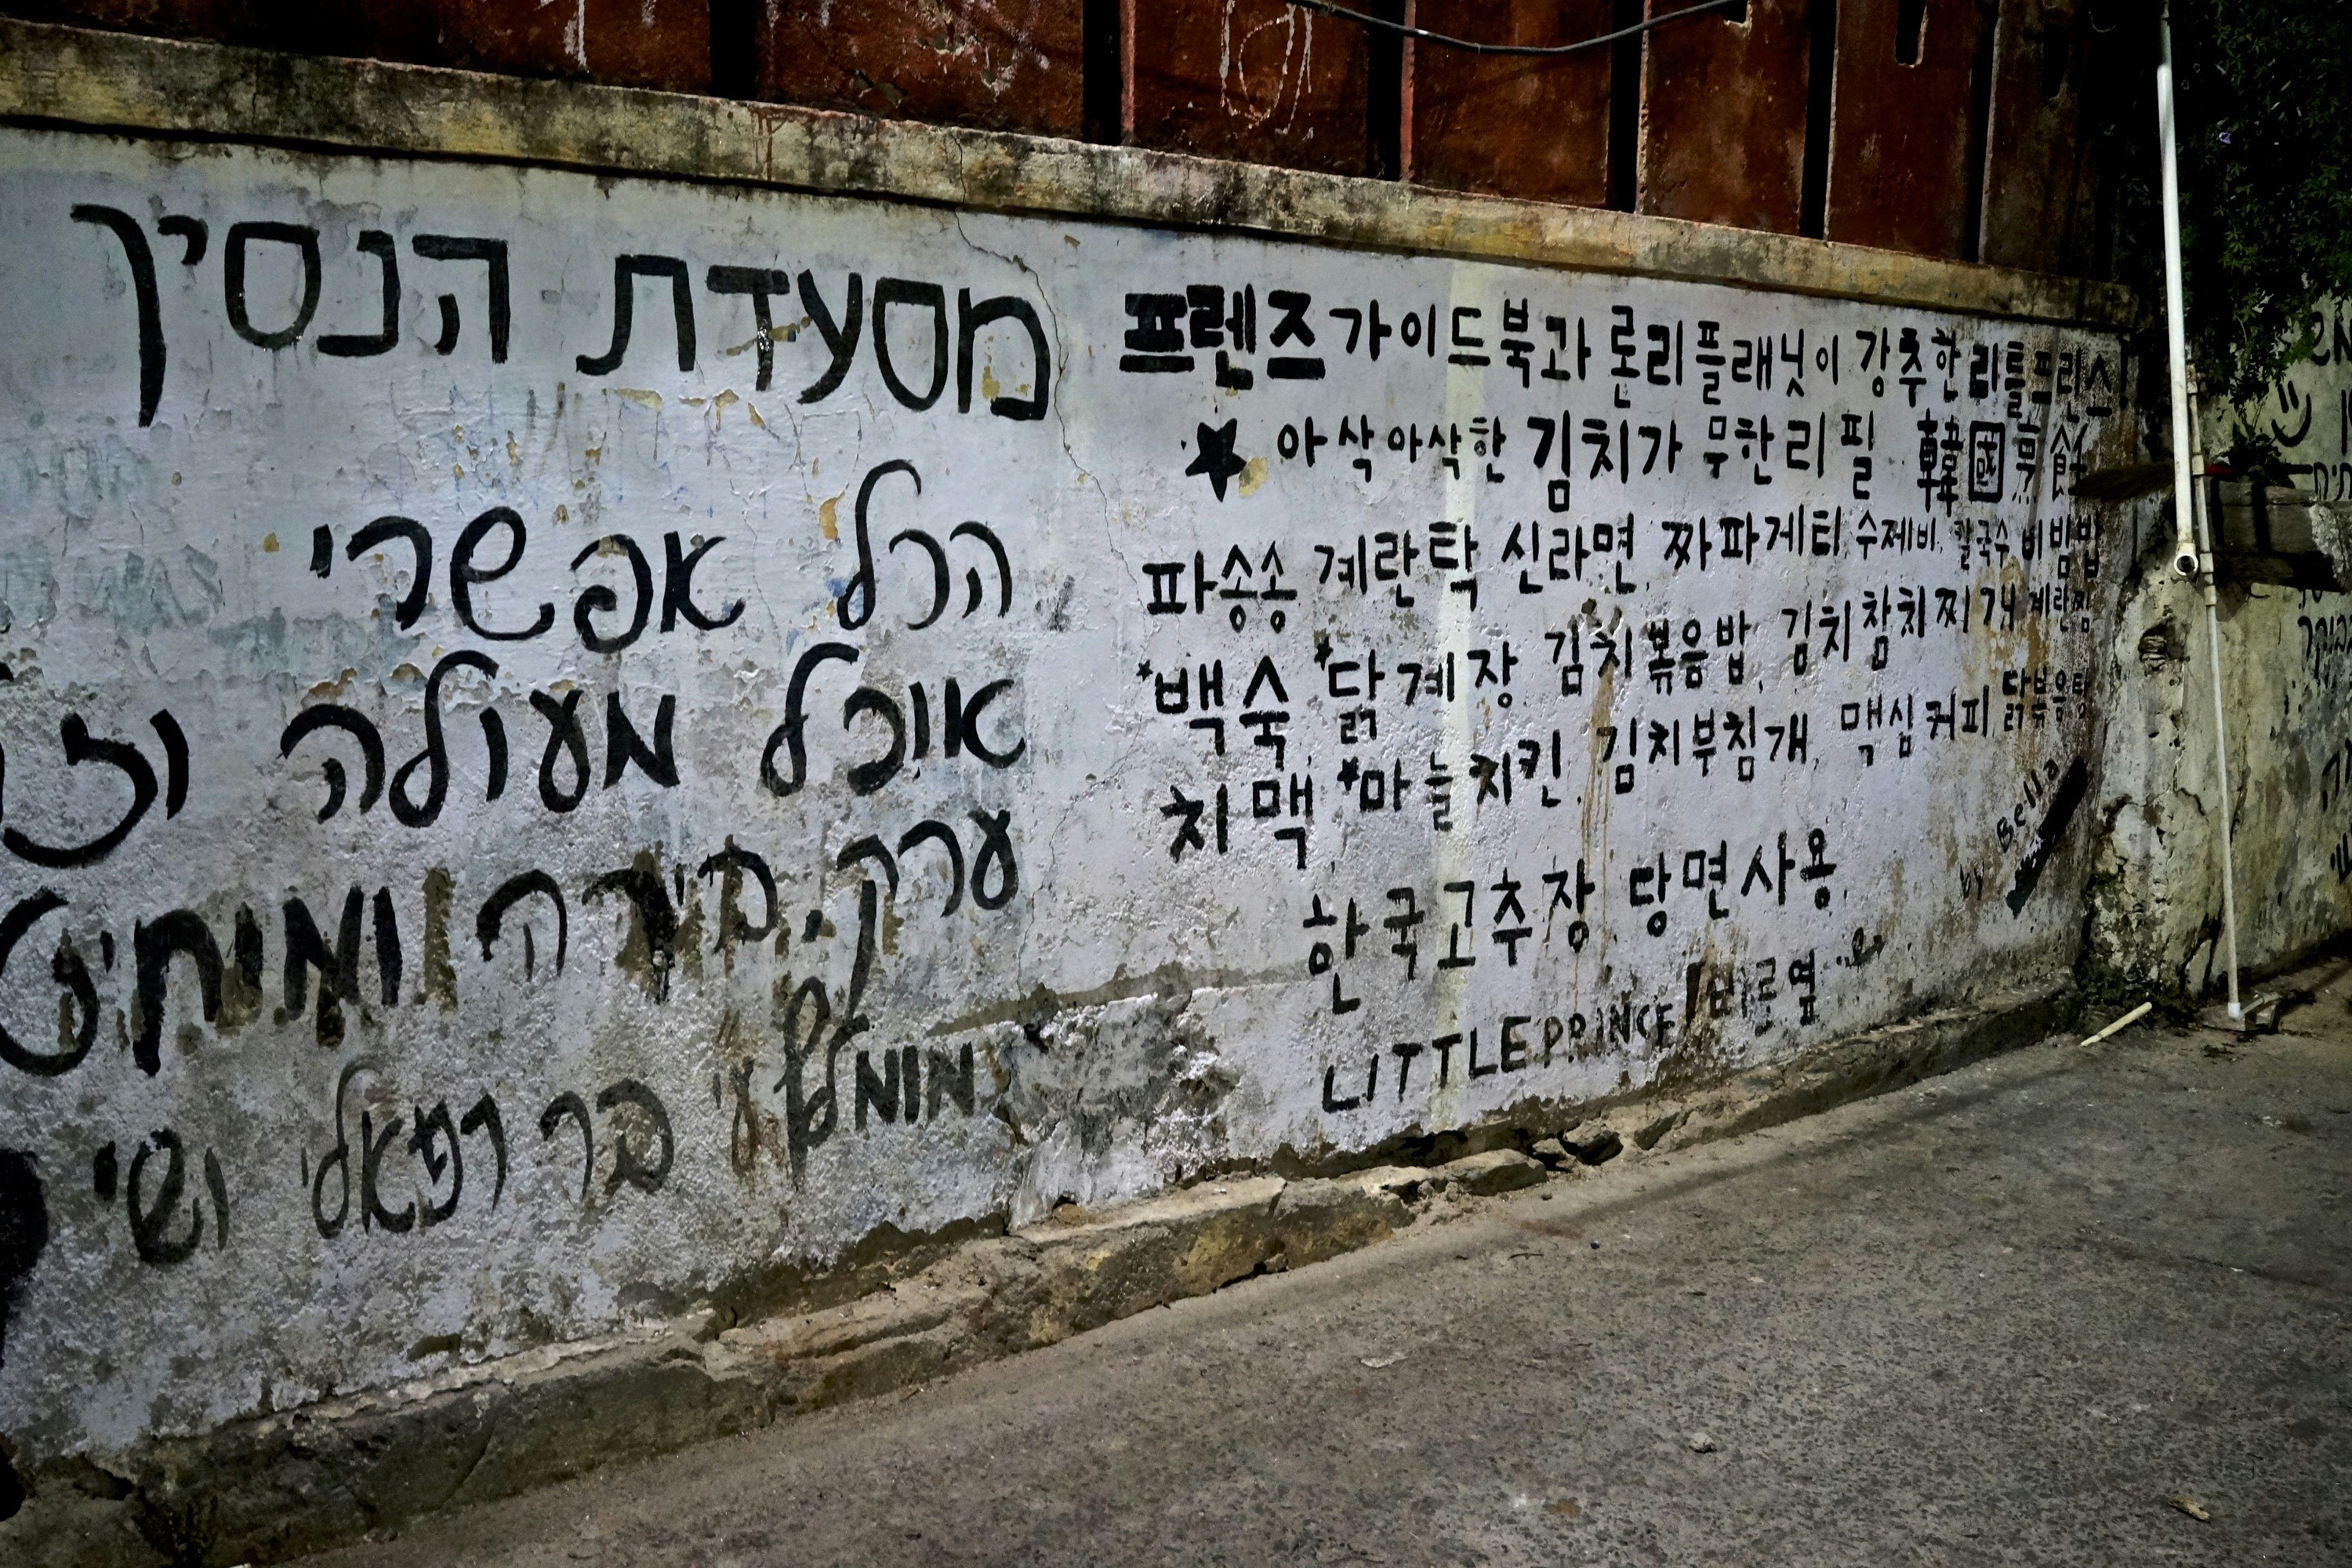 מסעדת הנסיך
הכל אפשרי
אוכל מעולה
ערק. בירה
מומלץ ע״י בר רפאלי ושי
프렌즈 가이드북과 론리플래닛이 강추한 리틀프린스!
★ 아삭아삭한 김치가 무한리필 韓國
파송송 계란탁 신라면, 짜파게티, 수제비, 칼국수, 비빔밥
*백숙 *닭계장 김치볶음밥, 김치참치찌개 계란찜
치맥, *마늘치킨, 김치부침개, 맥심커피 닭볶음탕
한국고추장 당면사용
LITTLE PRINCE
by Bella